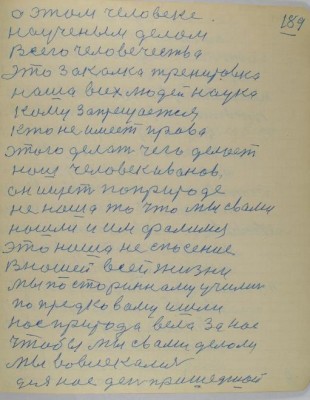 о этом человеке. 189
научным делом
всего человечества
это закалка тренировка
наша всих людей наука
кому запрещается
кто не имеет права
этого делать чего делает
наш человек иванов,
он ищет по природе
не наша то что мы свами
нашли и им
это наша не спосение
в нашей всей жизни
мы по сторинному учили
по предковому шли
нас природа вела за нас
чтобы мы свами делали
мы вовлекали
для нас ден пришедшой